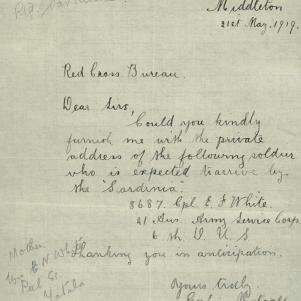 Middleton
21st May, 1919.
Red Cross Bureau.
Dear Sirs,
Could you kindly
furnish me with the private
address of the following soldier
who is expected to arrive by
the "Sardinia".
8687. Cpl E. F. White.
21 Aus. Army Service Corps
6 th D U S
Thanking you in anticipation.
Mother
E N White
Yatala
Yours truly.